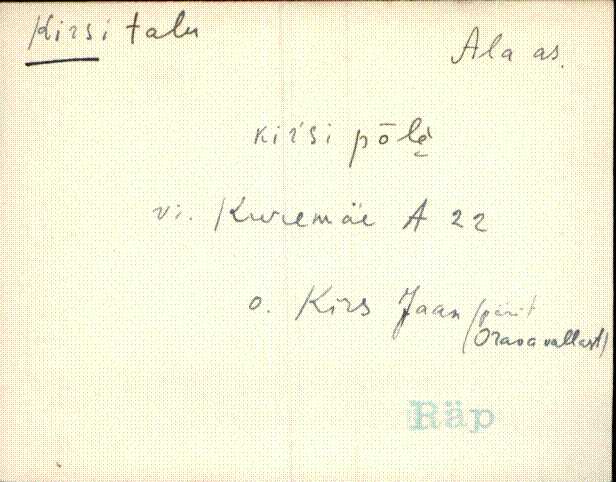 Kirsi talu
Ala as.
kiŕsi pōlè̮
vi. Kuremäe A 22
o. Kirs Jaan (pärit
(Orava vallast)
Räp